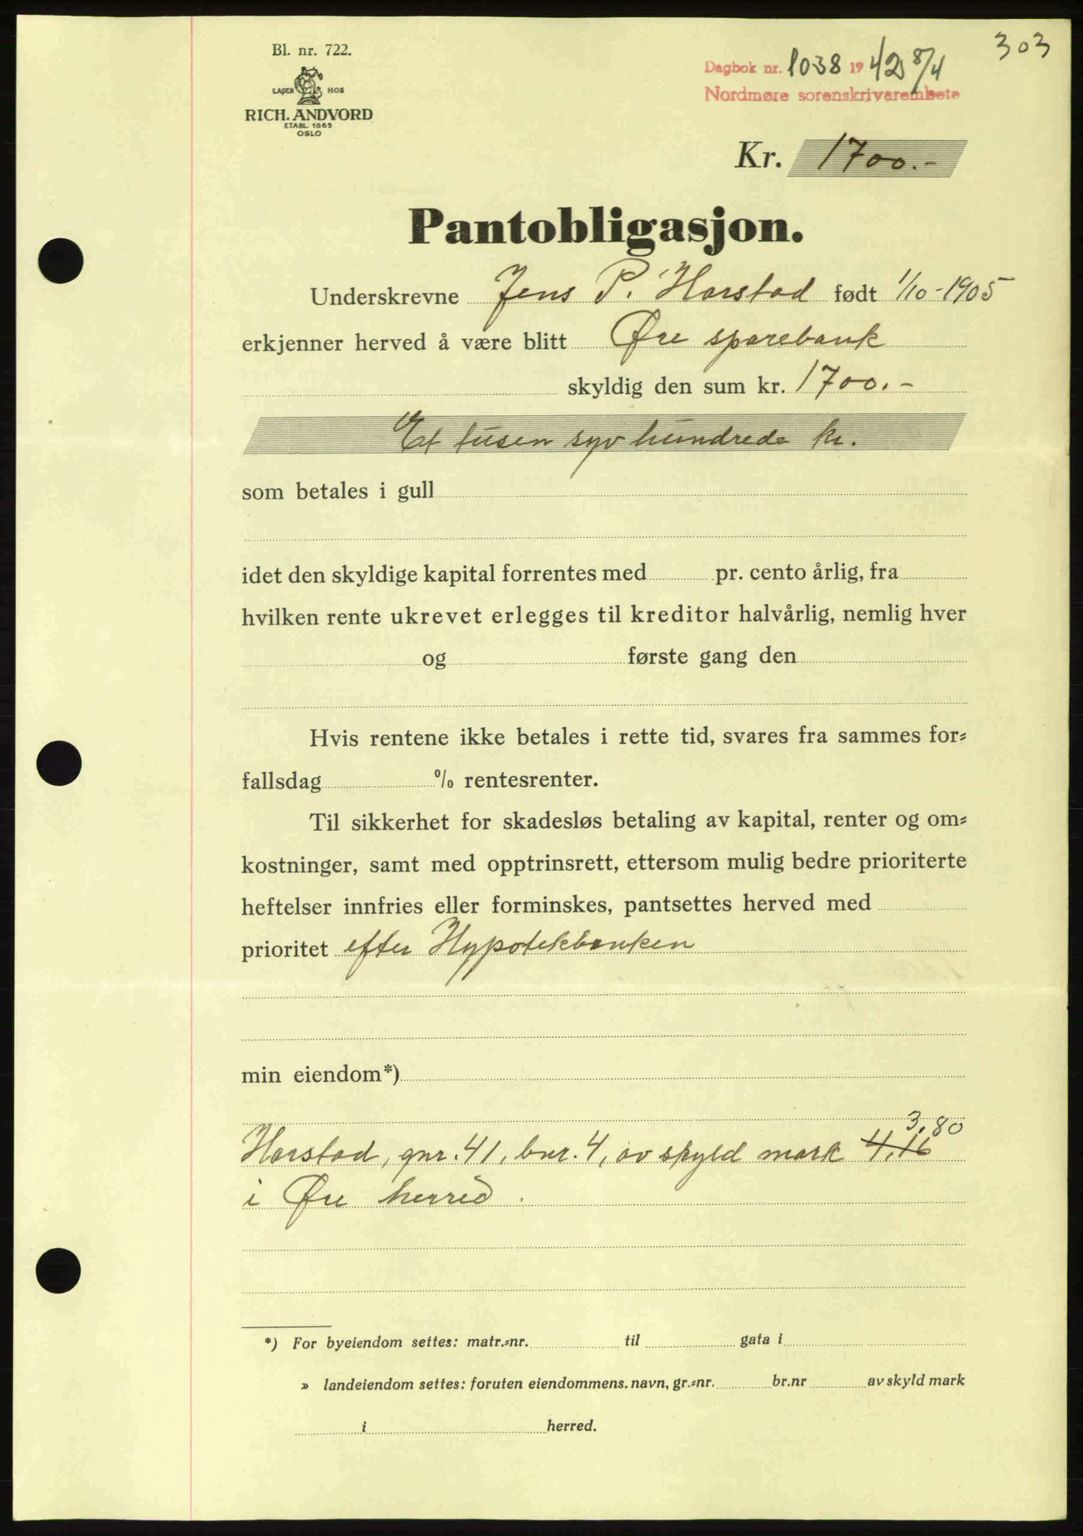 303
Bl. nr. 722.
LAGER HOS
RICH. ANDVORD
ETABL. 1865
OSLO
Dagbok nr. 1038 1942 8/4
Nordmøre sorenskrivarembete
Kr. 1700.-
Pantobligasjon.
Underskrevne Jens P. Harstad født 1/10-1905
erkjenner herved å være blitt Øre sparebank
skyldig den sum kr. 1700.-
Et tusen syv hundrede kr.
som betales i gull
idet den skyldige kapital forrentes med pr. cento årlig, fra
hvilken rente ukrevet erlegges til kreditor halvårlig, nemlig hver
og første gang den
Hvis rentene ikke betales i rette tid, svares fra sammes for=
fallsdag % rentesrenter.
Til sikkerhet for skadesløs betaling av kapital, renter og om=
kostninger, samt med opptrinsrett, ettersom mulig bedre prioriterte
heftelser innfries eller forminskes, pantsettes herved med
prioritet efter Hypotekbanken
min eiendom*)
3.80
Harstad, gnr. 41, bnr. 4, av skyld mark 4,16
i Øre herred.
*) For byeiendom settes: matr.=nr. til gata i
» landeiendom settes: foruten eiendommens. navn, gr.=nr. br.nr av skyld mark
i herred.